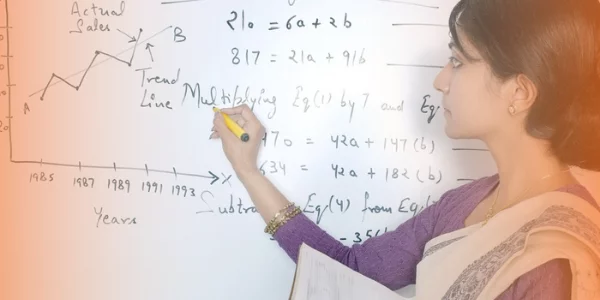 Actual
Sales
B
Trend
Line
A
20
1985 1987 1989 1991 1993 X
Years
210 = 6a + 2b
817 = 21a + 91b
Multiplying Eq(1) by 7 and Eq
470 = 42a + 147(b)
634 = 42a + 182(b)
Eq(4) from Eq(
-35(